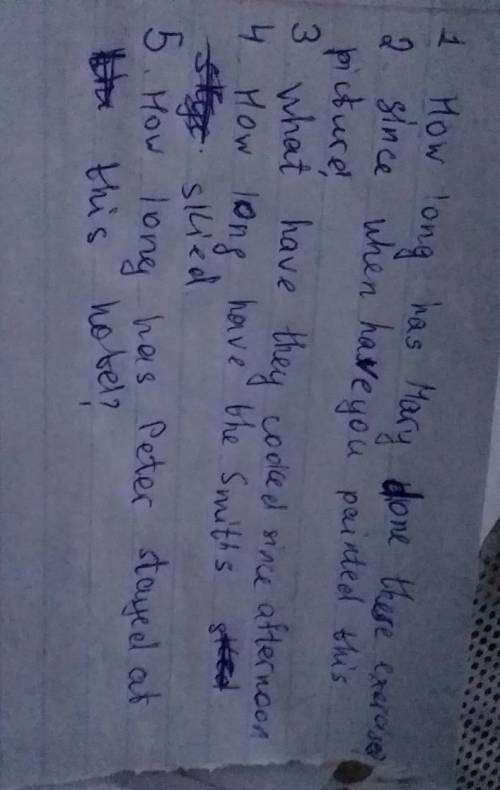 1 How long has Mary done these exercises?
2. since when have you painted this
picture,
3 what have they cooked since afternoon
4 How long have the Smiths
skied
5. How long has Peter stayed at
this hotel?